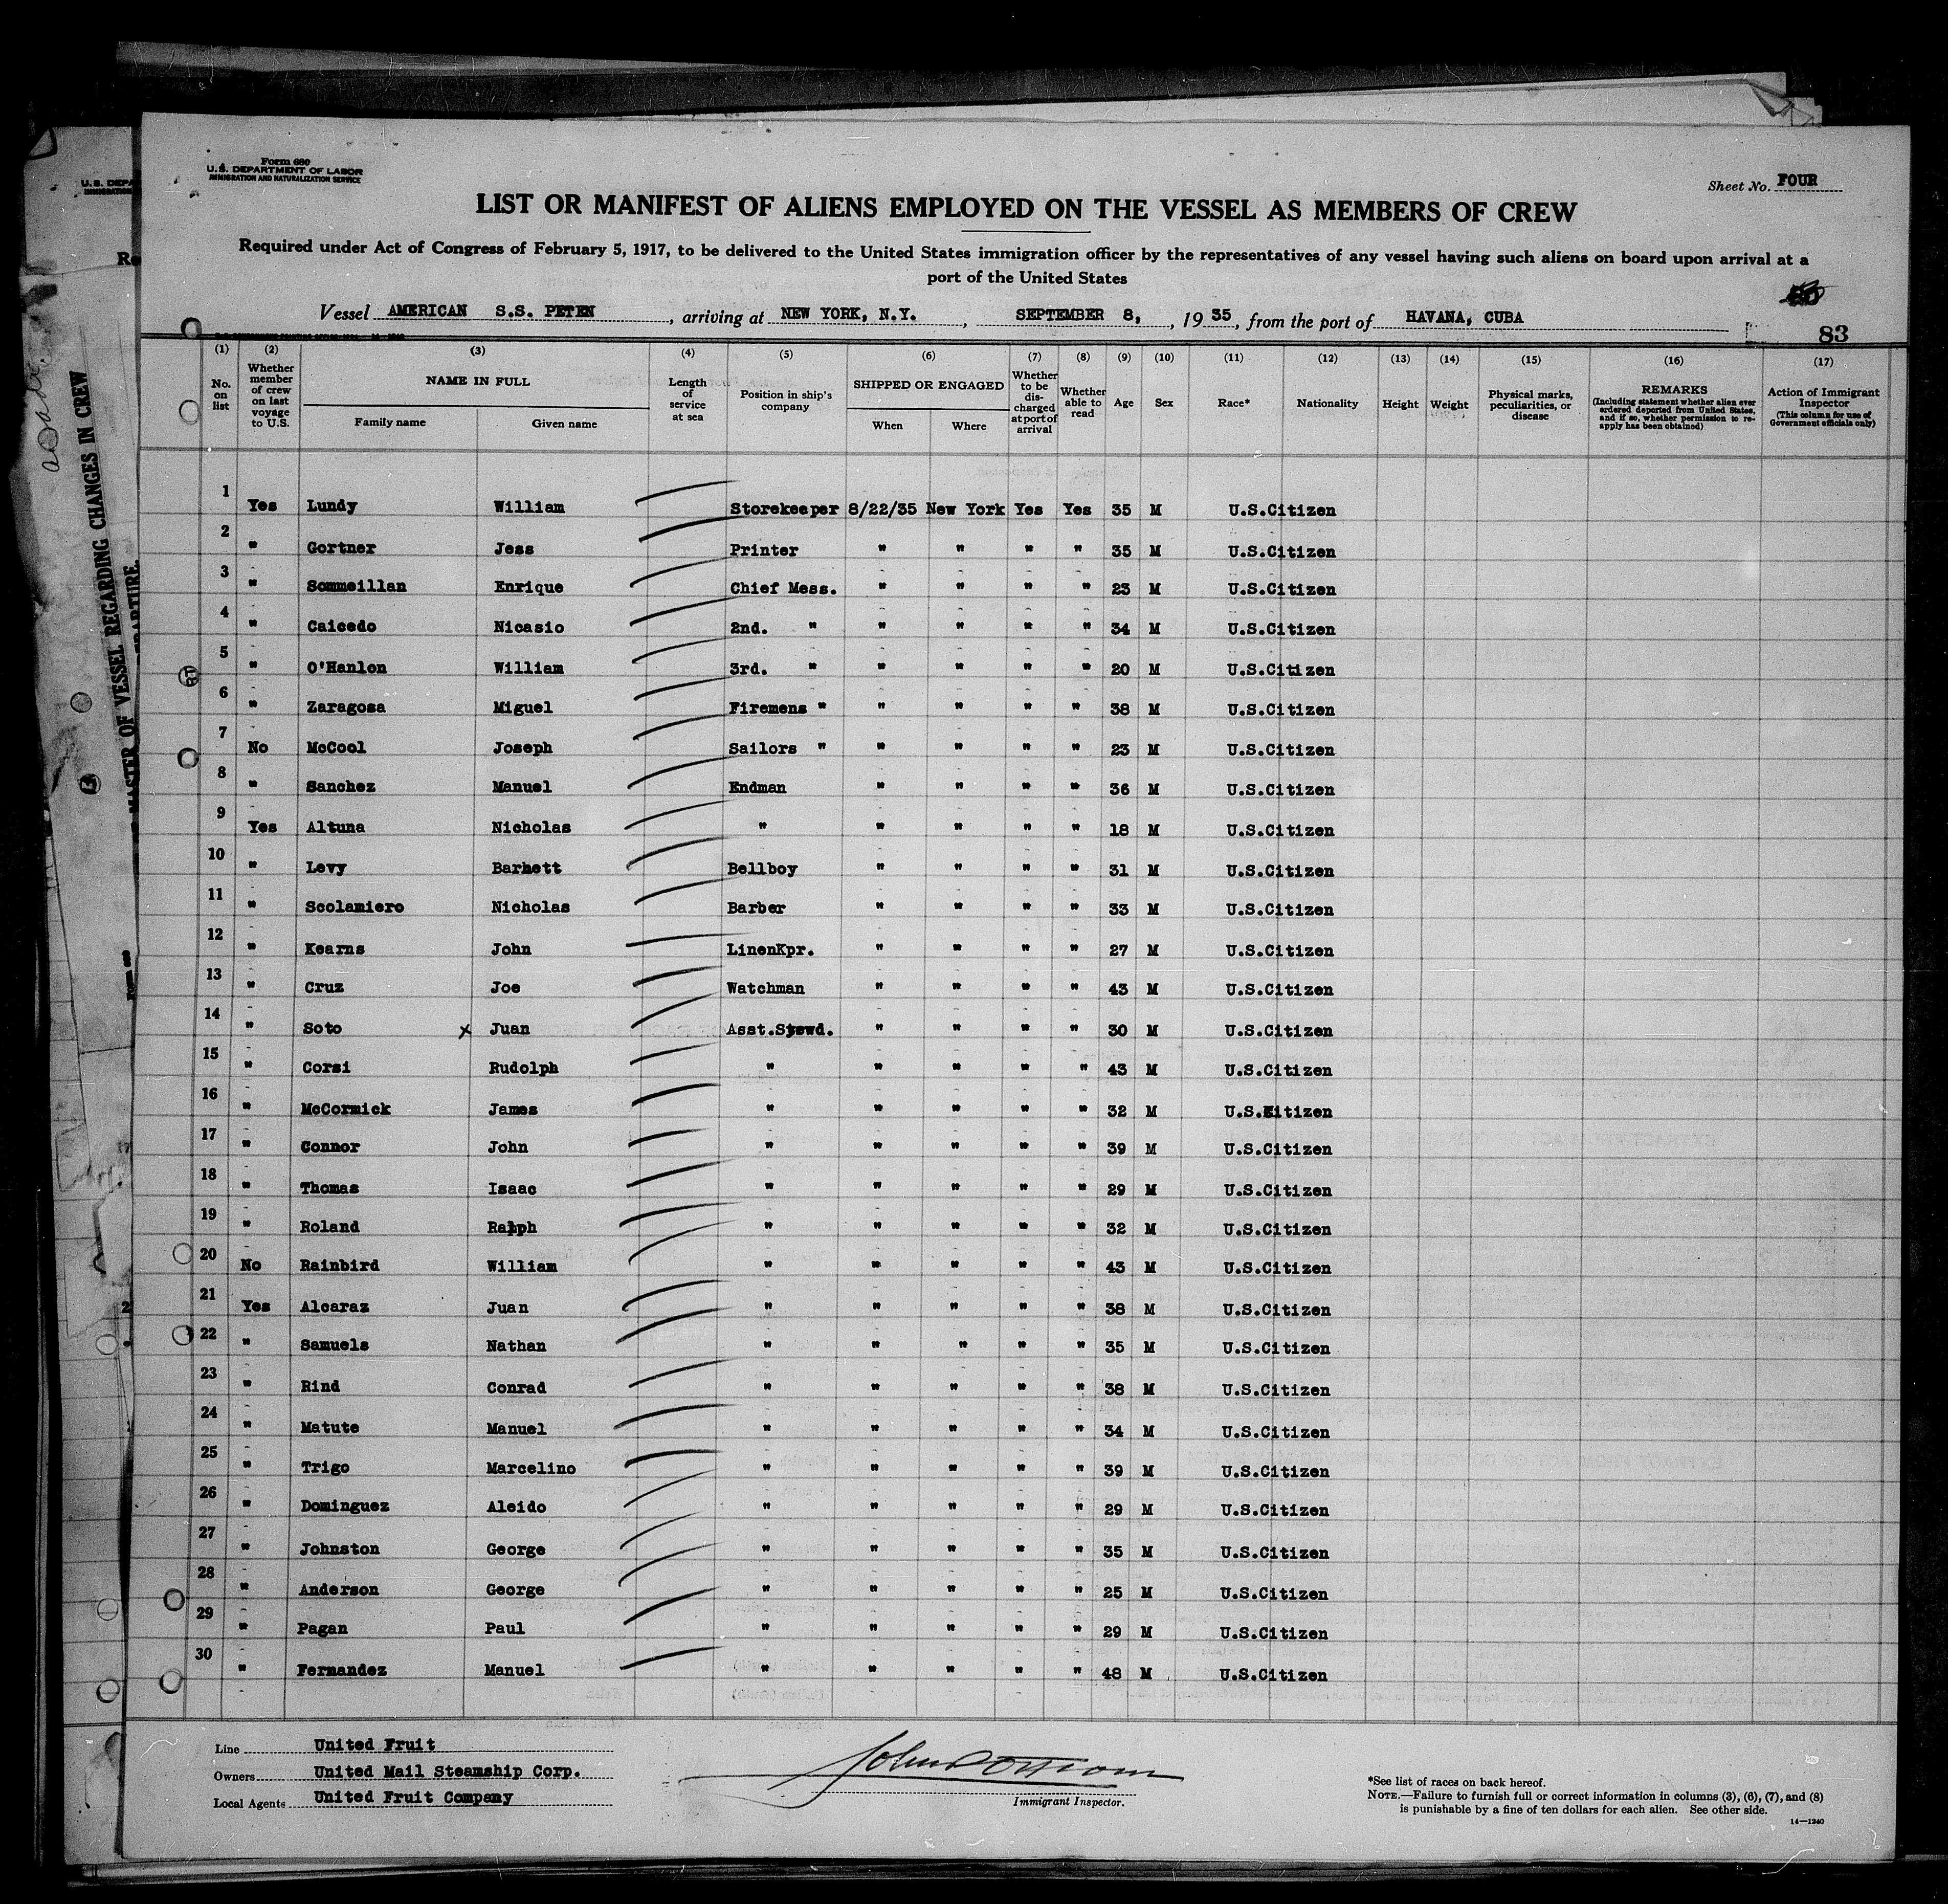 Form 680
U.S. DEPARTMENT OF LABOR
IMMIGRATION AND NATURALIZATION SERVICE
Sheet No. FOUR
LIST OR MANIFEST OF ALIENS EMPLOYED ON THE VESSEL AS MEMBERS OF CREW
Required under Act of Congress of February 5, 1917, to be delivered to the United States immigration officer by the representatives of any vessel having such aliens on board upon arrival at a
port of the United States
Vessel AMERICAN S.S. PETEN, arriving at NEW YORK, N.Y., SEPTEMBER 8, , 1935, from the port of HAVANA, CUBA
83
(1) (2) (3) (4) (5) (6) (7) (8) (9) (10) (11) (12) (13) (14) (15) (16) (17)
No. on list
Whether member of crew on last voyage to U.S.
NAME IN FULL
Family name
Given name
Length of service at sea
Position in ship's company
SHIPPED OR ENGAGED
When
Where
Whether to be discharged at port of arrival
Whether able to read
Age
Sex
Race*
Nationality
Height
Weight
Physical marks, peculiarities, or disease
REMARKS
(Including statement whether alien ever ordered deported from United States, and if so, whether permission to re-apply has been obtained)
Action of Immigrant Inspector
(This column for use of Government officials only)
1 Yes Lundy William Storekeeper 8/22/35 New York Yes Yes 35 M U.S.Citizen
2 " Gortner Jess Printer " " " " 35 M U.S.Citizen
3 " Sommeillan Enrique Chief Mess. " " " " 23 M U.S.Citizen
4 " Caicedo Nicasio 2nd. " " " " " 34 M U.S.Citizen
5 " O'Hanlon William 3rd. " " " " " 20 M U.S.Citizen
6 " Zaragosa Miguel Firemens " " " " " 38 M U.S.Citizen
7 No McCool Joseph Sailors " " " " " 23 M U.S.Citizen
8 " Sanchez Manuel Endman " " " " 36 M U.S.Citizen
9 Yes Altuna Nicholas " " " " " 18 M U.S.Citizen
10 " Levy Barnett Bellboy " " " " 31 M U.S.Citizen
11 " Scolamiero Nicholas Barber " " " " 33 M U.S.Citizen
12 " Kearns John LinenKpr. " " " " 27 M U.S.Citizen
13 " Cruz Joe Watchman " " " " 43 M U.S.Citizen
14 " Soto x Juan Asst.Stewd. " " " " 30 M U.S.Citizen
15 " Corsi Rudolph " " " " " 43 M U.S.Citizen
16 " McCormick James " " " " " 32 M U.S.Citizen
17 " Connor John " " " " " 39 M U.S.Citizen
18 " Thomas Isaac " " " " " 29 M U.S.Citizen
19 " Roland Ralph " " " " " 32 M U.S.Citizen
20 No Rainbird William " " " " " 43 M U.S.Citizen
21 Yes Alcaraz Juan " " " " " 38 M U.S.Citizen
22 " Samuels Nathan " " " " " 35 M U.S.Citizen
23 " Rind Conrad " " " " " 38 M U.S.Citizen
24 " Matute Manuel " " " " " 34 M U.S.Citizen
25 " Trigo Marcelino " " " " " 39 M U.S.Citizen
26 " Dominguez Aleido " " " " " 29 M U.S.Citizen
27 " Johnston George " " " " " 35 M U.S.Citizen
28 " Anderson George " " " " " 25 M U.S.Citizen
29 " Pagan Paul " " " " " 29 M U.S.Citizen
30 " Fernandez Manuel " " " " " 48 M U.S.Citizen
Line United Fruit
Owners United Mail Steamship Corp.
Local Agents United Fruit Company
Immigrant Inspector.
*See list of races on back hereof.
NOTE.—Failure to furnish full or correct information in columns (3), (6), (7), and (8)
is punishable by a fine of ten dollars for each alien. See other side.
14—1240
MASTER OF VESSEL REGARDING CHANGES IN CREW
DEPARTURE.
Form 680